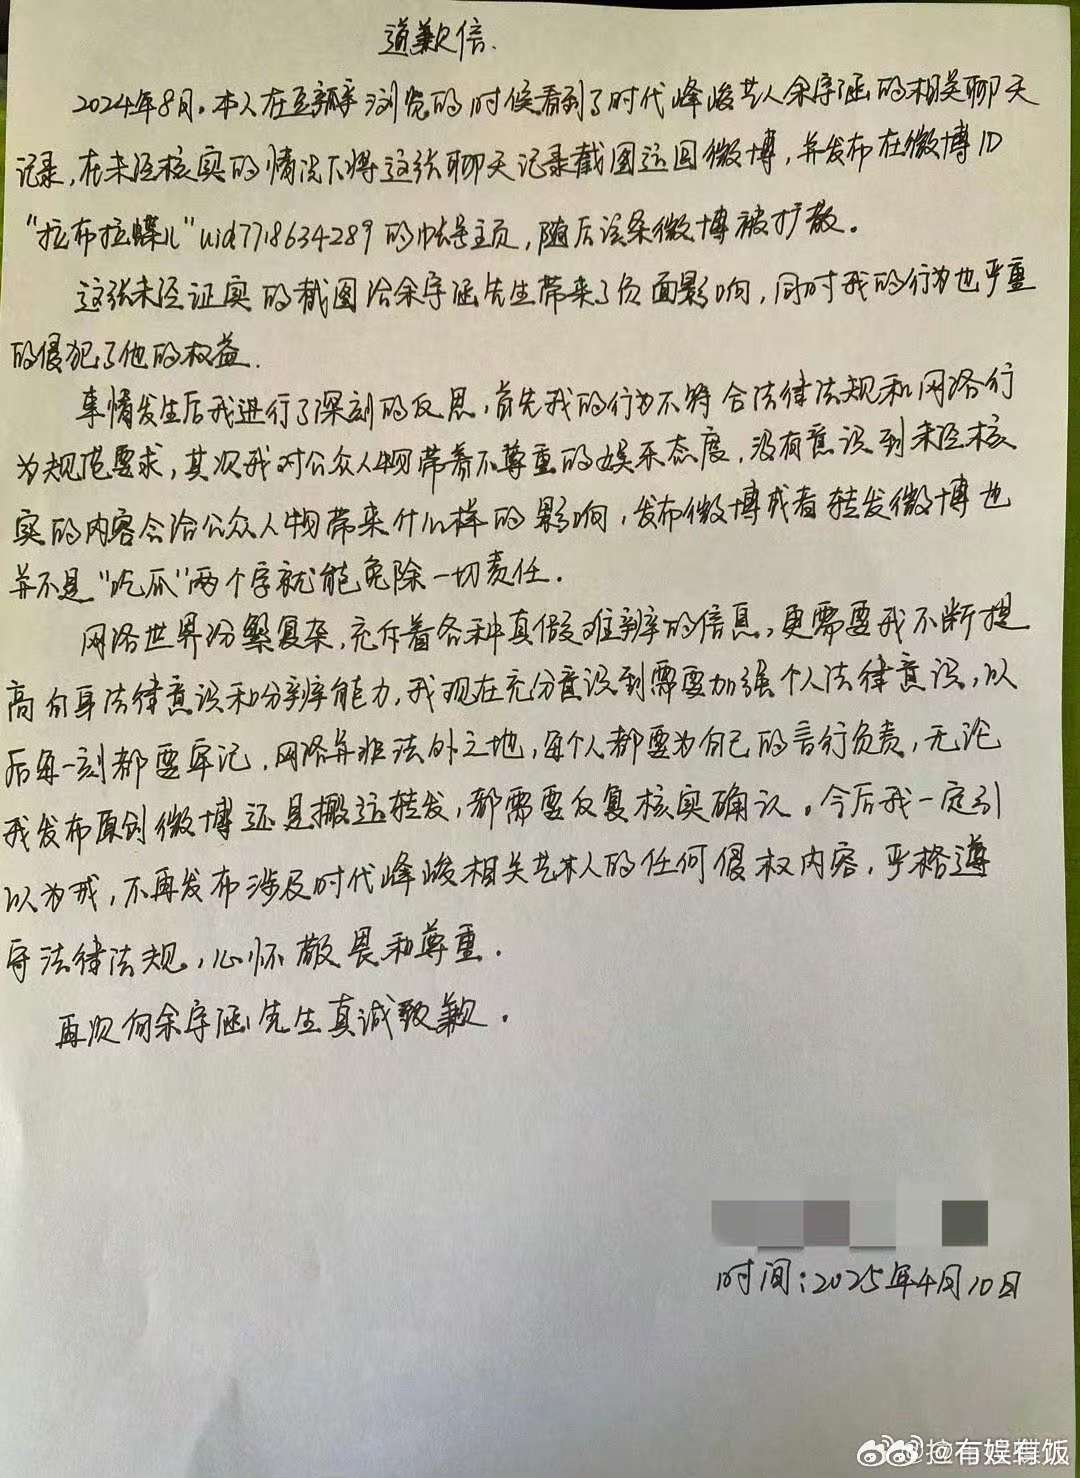 道歉信.
2024年8月.本人在豆瓣浏览的时候看到了时代峰峻艺人余宇涵的相关聊天
记录,在未经核实的情况下将这张聊天记录截图运回微博,并发布在微博ID
"拉布拉蝶儿"uid7718634289的帐号主页,随后该条微博被扩散.
这张未经证实的截图给余宇涵先生带来了负面影响,同时我的行为也严重
的侵犯了他的权益.
事情发生后我进行了深刻的反思,首先我的行为不符合法律法规和网络行
为规范要求,其次我对公众人物带着不尊重的娱乐态度,没有意识到未经核
实的内容会给公众人物带来什么样的影响,发布微博或者转发微博也
并不是"吃瓜"两个字就能免除一切责任.
网络世界纷繁复杂,充斥着各种真假难辨的信息,更需要我不断提
高自身法律意识和分辨能力,我现在充分意识到需要加强个人法律意识,以
后每一刻都要牢记,网络并非法外之地,每个人都要为自己的言行负责,无论
我发布原创微博还是搬运转发,都需要反复核实确认.今后我一定引
以为戒,不再发布涉及时代峰峻相关艺人的任何侵权内容,严格遵
守法律法规,心怀敬畏和尊重.
再次向余宇涵先生真诚致歉.
时间:2025年4月10日
@有娱有饭